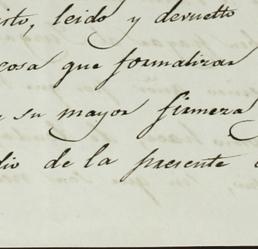 isto, leido y devuelto
cosa que formalizar
su mayor firmeza
dio de la presente